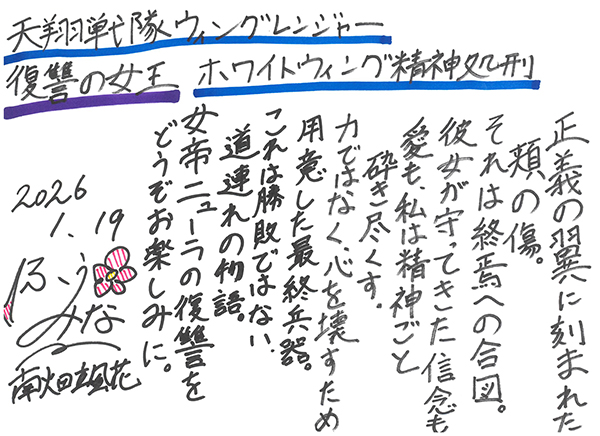 天翔戦隊ウィングレンジャー
復讐の女王 ホワイトウィング精神処刑
正義の翼に刻まれた
頬の傷。
それは終焉への合図。
彼女が守ってきた信念も
愛も、私は精神ごと
砕き尽くす。
力ではなく、心を壊すため
用意した最終兵器。
これは勝敗ではない、
道連れの物語。
女帝ニューラの復讐を
どうぞお楽しみに。
2026
1.19
ふう
みな
南畑颯花